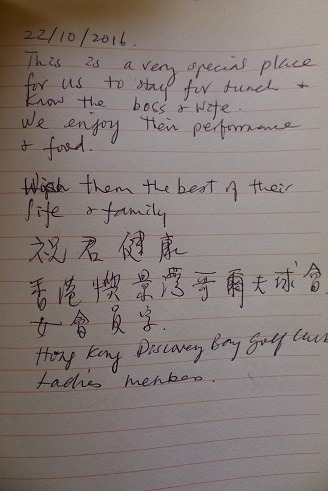 22/10/2016.
This is a very special place
for us to stay for lunch &
know the boss & wife.
We enjoy their performance
& food.
Wish them the best of their
life & family
祝君健康
香港愉景灣哥爾夫球會
女會員字.
Hong Kong Discovery Bay Golf Club
Ladies members.